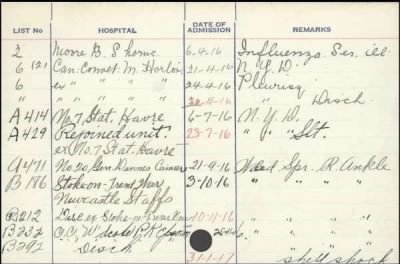 LIST No HOSPITAL DATE OF ADMISSION REMARKS
2 Moore B. S'home 6.4.16 Influenza Ser. ill.
6 (21) Can: Convst: M. Horton 21-4-16 N. Y. D.
6 ex " " " 24-4-16 Pleurisy
" " " " 30-4-16 Disch.
A414 No. 7 Stat. Havre 6-7-16 N. Y. D.
A429 Rejoined unit. 23-7-16 Slt.
ex No 7 Stat. Havre
A471 No. 20 Gen Dannes Camiers 21-9-16 Wded Spr. R. Ankle
B186 Stoke-on-Trent War 3-10-16 " " " "
Newcastle Staffs
B212 Disc ex Stoke-on-Trent War 10-11-16 " " " "
B232 C.C. Wdcote Pk Epsom " " " "
B292 Disch 31-1-17 shell shock